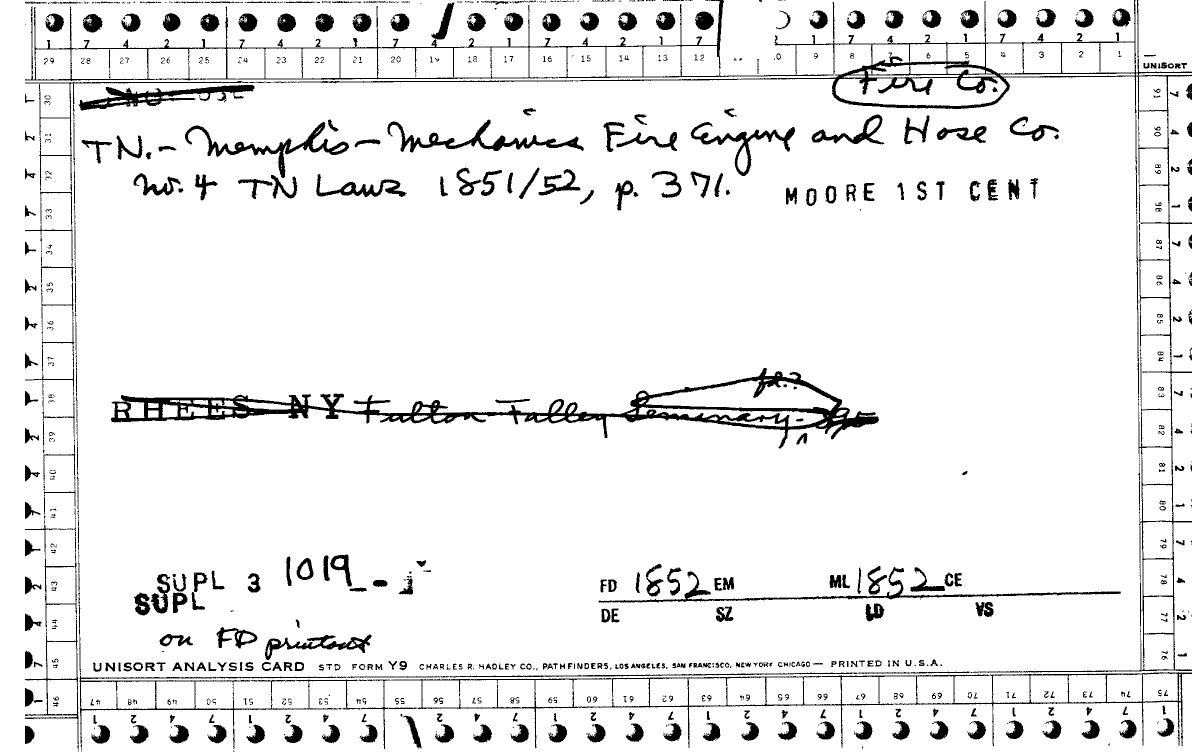 1 7 4 2 1 7 4 2 1 7 2 1 7 4 2 1 7 2 1 7 4 2 1 7 4 2 1
29 28 27 26 25 24 23 22 21 20 19 18 17 16 15 14 13 12 9 8 7 6 5 4 3 2 1 UNISORT
Fire Co.
TN.- Memphis - Mechanics Fire Engine and Hose Co.
no. 4 TN Laws 1851/52, p. 371. MOORE 1ST CENT
fd.?
RHEES NY Fulton Falley Seminary-
SUPL 3 1019
SUPL
on FD printout
FD 1852 EM ML 1852 CE
DE SZ LD VS
UNISORT ANALYSIS CARD STD FORM Y9 CHARLES R. HADLEY CO., PATHFINDERS, LOS ANGELES, SAN FRANCISCO, NEW YORK CHICAGO — PRINTED IN U.S.A.
30 31 32 33 34 35 36 37 38 39 40 41 42 43 44 45 46
91 90 89 88 87 86 85 84 83 82 81 80 79 78 77 76
47 48 49 50 51 52 53 54 55 56 57 58 59 60 61 62 63 64 65 66 67 68 69 70 71 72 73 74 75